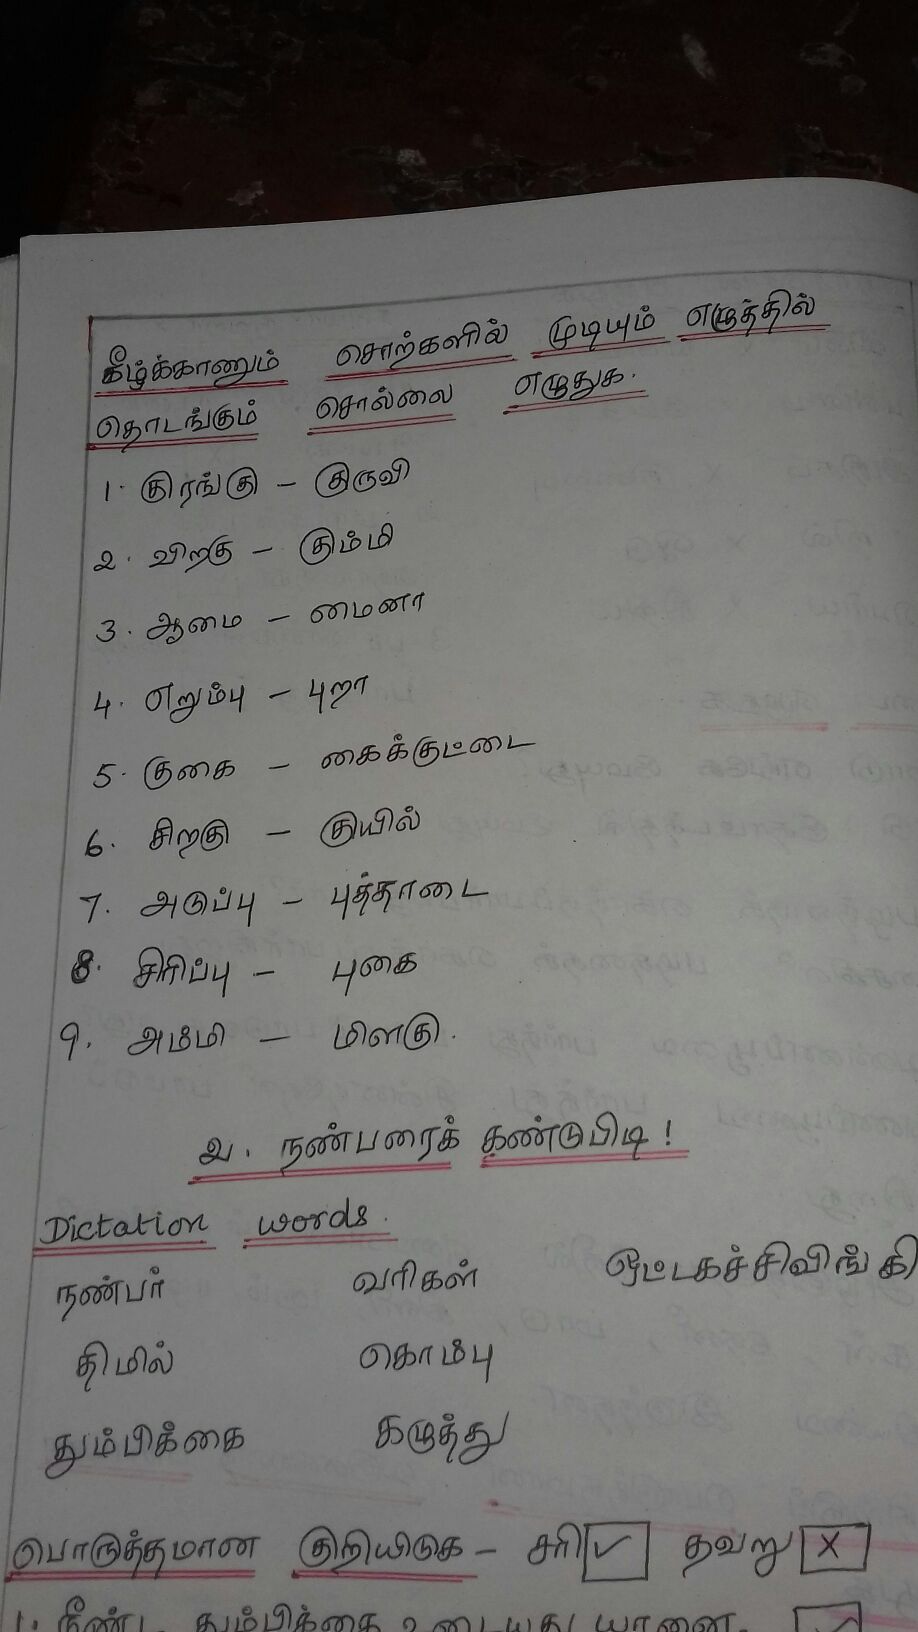 கீழ்க்காணும் சொற்களில் முடியும் எழுத்தில்
தொடங்கும் சொல்லை எழுதுக.
1. குரங்கு – குருவி
2. விறகு – கும்மி
3. ஆமை – மைனா
4. எறும்பு – புறா
5. குகை – கைக்குட்டை
6. சிறகு – குயில்
7. அடுப்பு – புத்தாடை
8. சிரிப்பு – புகை
9. அம்மி – மிளகு.
2. நண்பரைக் கண்டுபிடி!
Dictation words.
நண்பர் வரிகள் ஒட்டகச்சிவிங்கி
திமில் கொம்பு
தும்பிக்கை கழுத்து
பொருத்தமான குறியிடுக – சரி ✓ தவறு X
1. நீண்ட தும்பிக்கை உடையது யானை. ✓